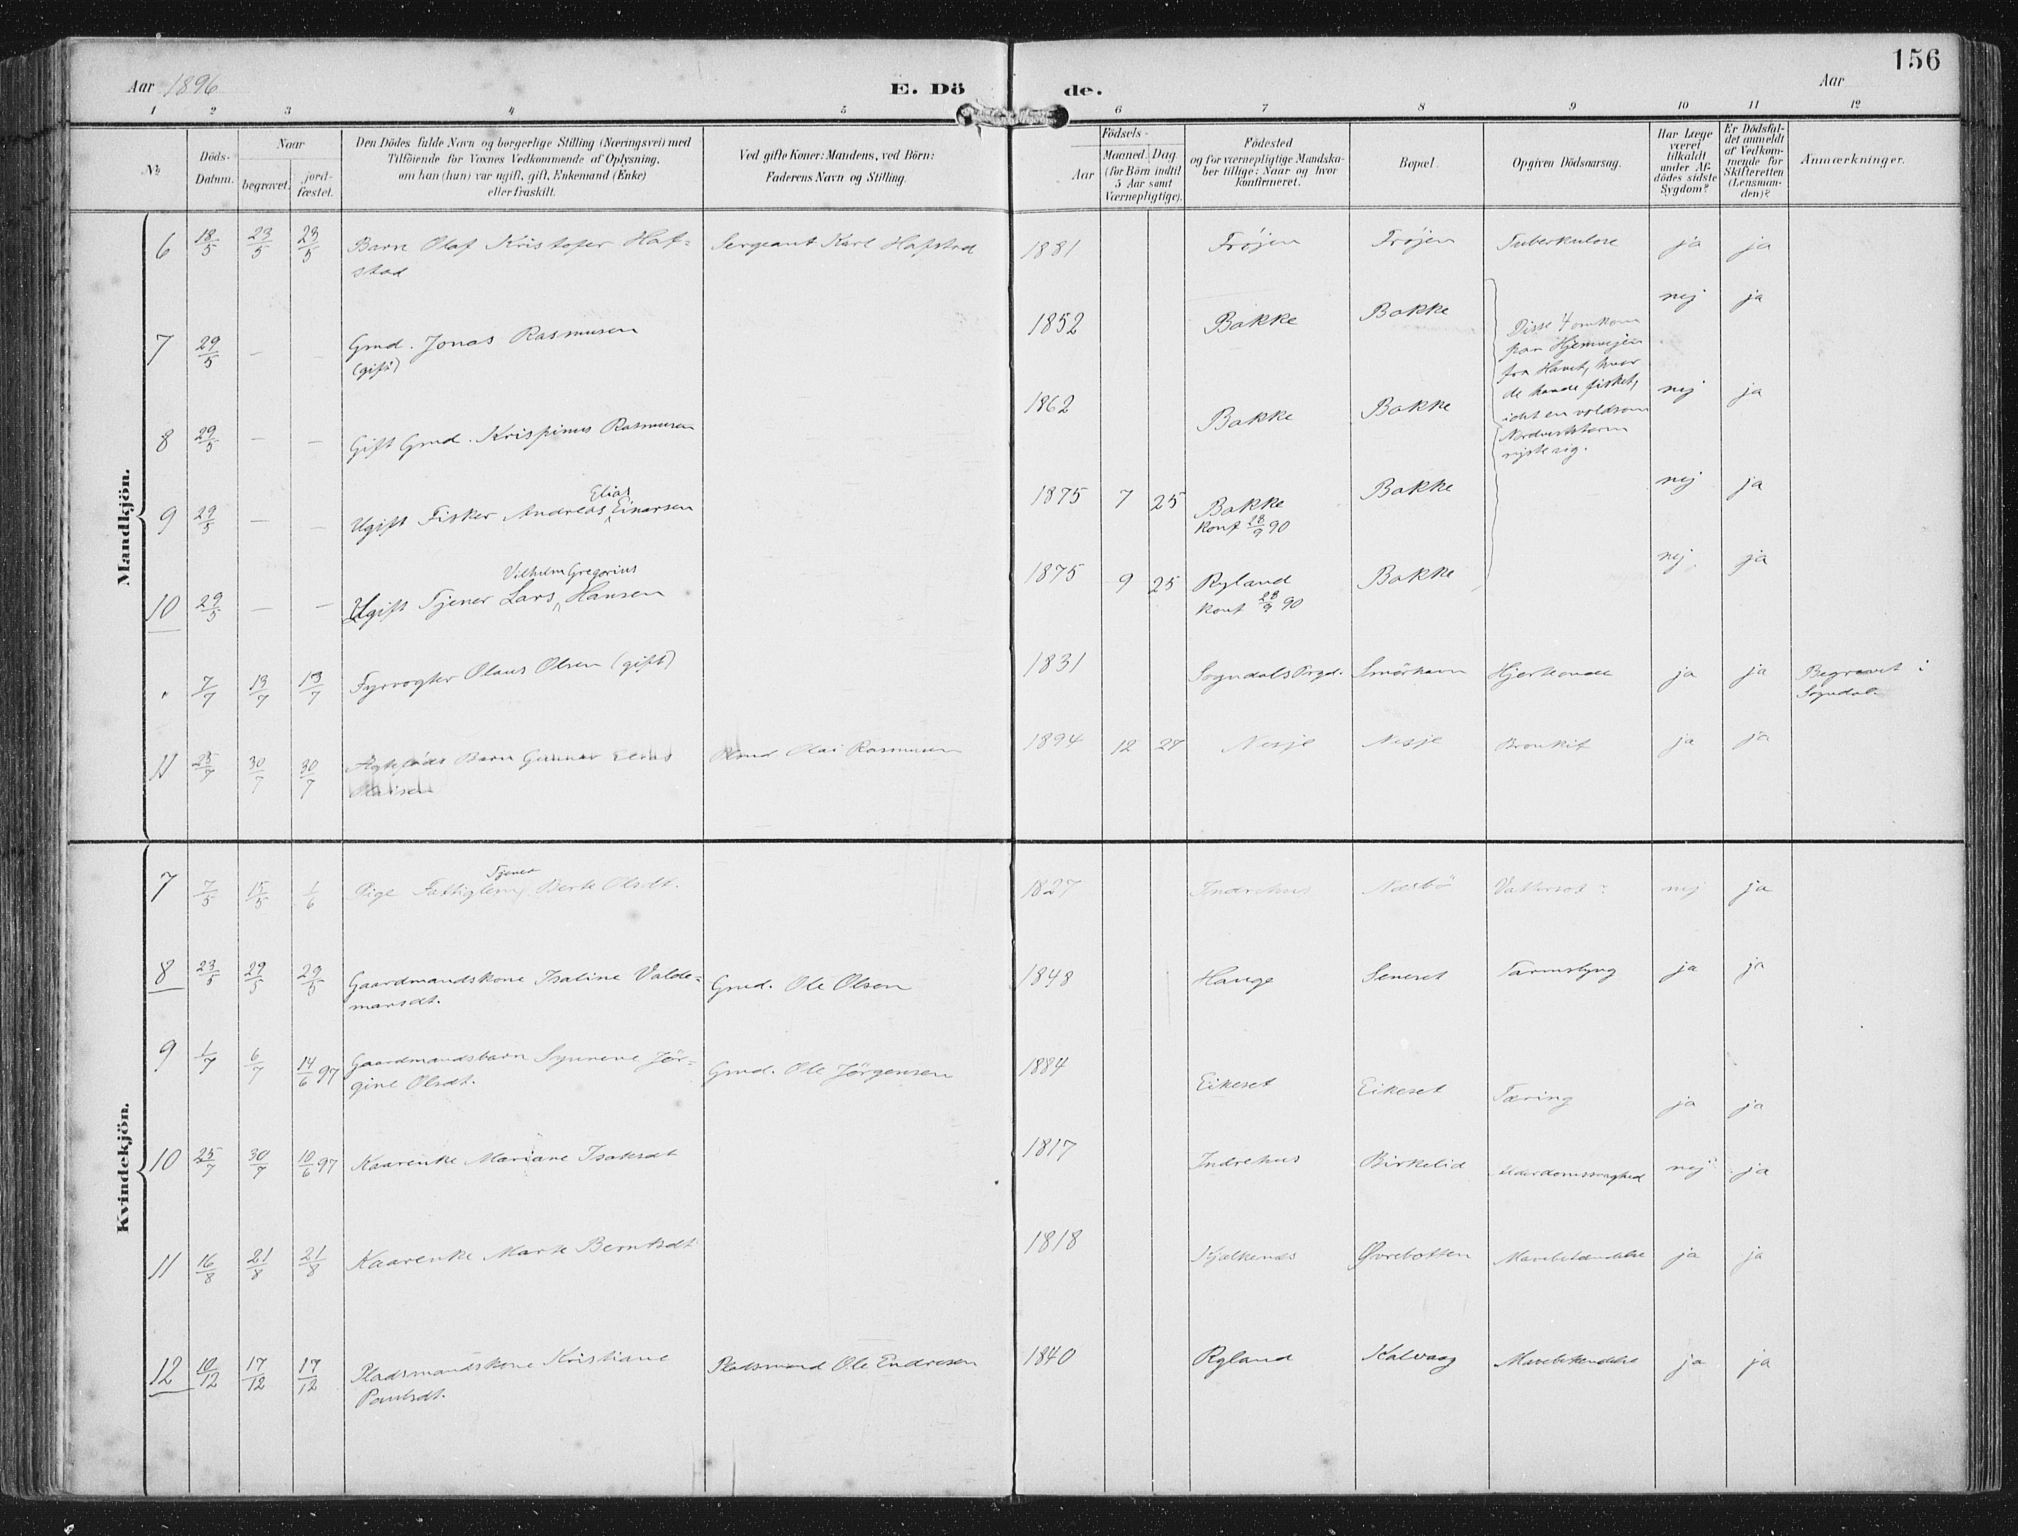 156
Aar 1896
E. Dö
de.
Aar
1 2 3 4 5 6 7 8 9 10 11 12
No
Döds-
Datum.
Naar
begravet.
jord-
fæstet.
Den Dödes fulde Navn og borgerlige Stilling (Næringsvei) med
Tilföiende for Voxnes Vedkommende af Oplysning,
om han (hun) var ugift, gift, Enkemand (Enke)
eller fraskilt.
Ved gifte Koner: Mandens, ved Börn:
Faderens Navn og Stilling.
Födsels-
Aar
Maaned. Dag.
(for Börn indtil
5 Aar samt
Værnepligtige).
Födested
og for værnepligtige Mandska-
ber tillige: Naar og hvor
konfirmeret.
Bopæl.
Opgiven Dödsaarsag.
Har Læge
været
tilkaldt
under Af-
dödes sidste
Sygdom?
Er Dödsfal-
det anmeldt
af Vedkom-
mende for
Skifteretten
(Lensman-
den)?
Anmærkninger.
Mandkjön.
6 18/5 23/5 23/5 Barn Olaf Kristofer Haf- Sergeant Karl Hafstad 1881 Frøjen Frøjen Tuberkulose ja ja
stad
7 29/5 – – Gmd. Jonas Rasmusen 1852 Bakke Bakke nej ja
(gift)
Disse 4 omkom
paa Hjemvejen
fra Havet, hvor
de havde fisket,
idet en voldsom
Nordveststorm
rejste sig.
8 29/5 – – Gift Gmd. Krispinus Rasmusen 1862 Bakke Bakke nej ja
Elias
9 29/5 – – Ugift Fisker Andreas Einarsen 1875 7 25 Bakke Bakke nej ja
konf 28/9 90
Vilhelm Gregorius
10 29/5 – – Ugift Tjener Lars Hansen 1875 9 25 Ryland Bakke nej ja
konf 28/9 90
7/7 13/7 13/7 Fyrvogter Olaus Olsen (gift) 1831 Sogndals Prgd. Smørhavn Hjerteonde ja ja Begravet i
Sogndal
11 25/7 30/7 30/7 Ægtefødt Barn Gunnar 1894 12 27 Nesje Nesje Bronkit ja ja
Gmd Olai Rasmusen
Olaisen
Kvindekjön.
Tjener
7 7/5 15/5 1/6 Pige Fattiglem Berte Olsdt. 1827 Indrehus Næsbø Vattersot nej ja
8 23/5 29/5 29/5 Gaardmandskone Isaline Valde- Gmd. Ole Olsen 1848 Hauge Seneset Tarmslyng ja ja
marsdt.
9 1/7 6/7 14/6 97 Gaardmandsbarn Synneve Jør- Gmd. Ole Jørgensen 1884 Eikeset Eikeset Tæring ja ja
gine Olsdt.
10 25/7 30/7 10/6 97 Kaarenke Mariane Isaksdt 1817 Indrehus Birkelid Alderdomssvaghed nej ja
11 16/8 21/8 21/8 Kaarenke Marte Berntsdt 1818 Kjelkenes Øvrebotten Mavebetændelse ja ja
12 10/12 17/12 17/12 Pladsmandskone Kristiane Pladsmand Ole Endresen 1840 Ryland Kalvaag Mavebetændelse ja ja
Paulsdt.